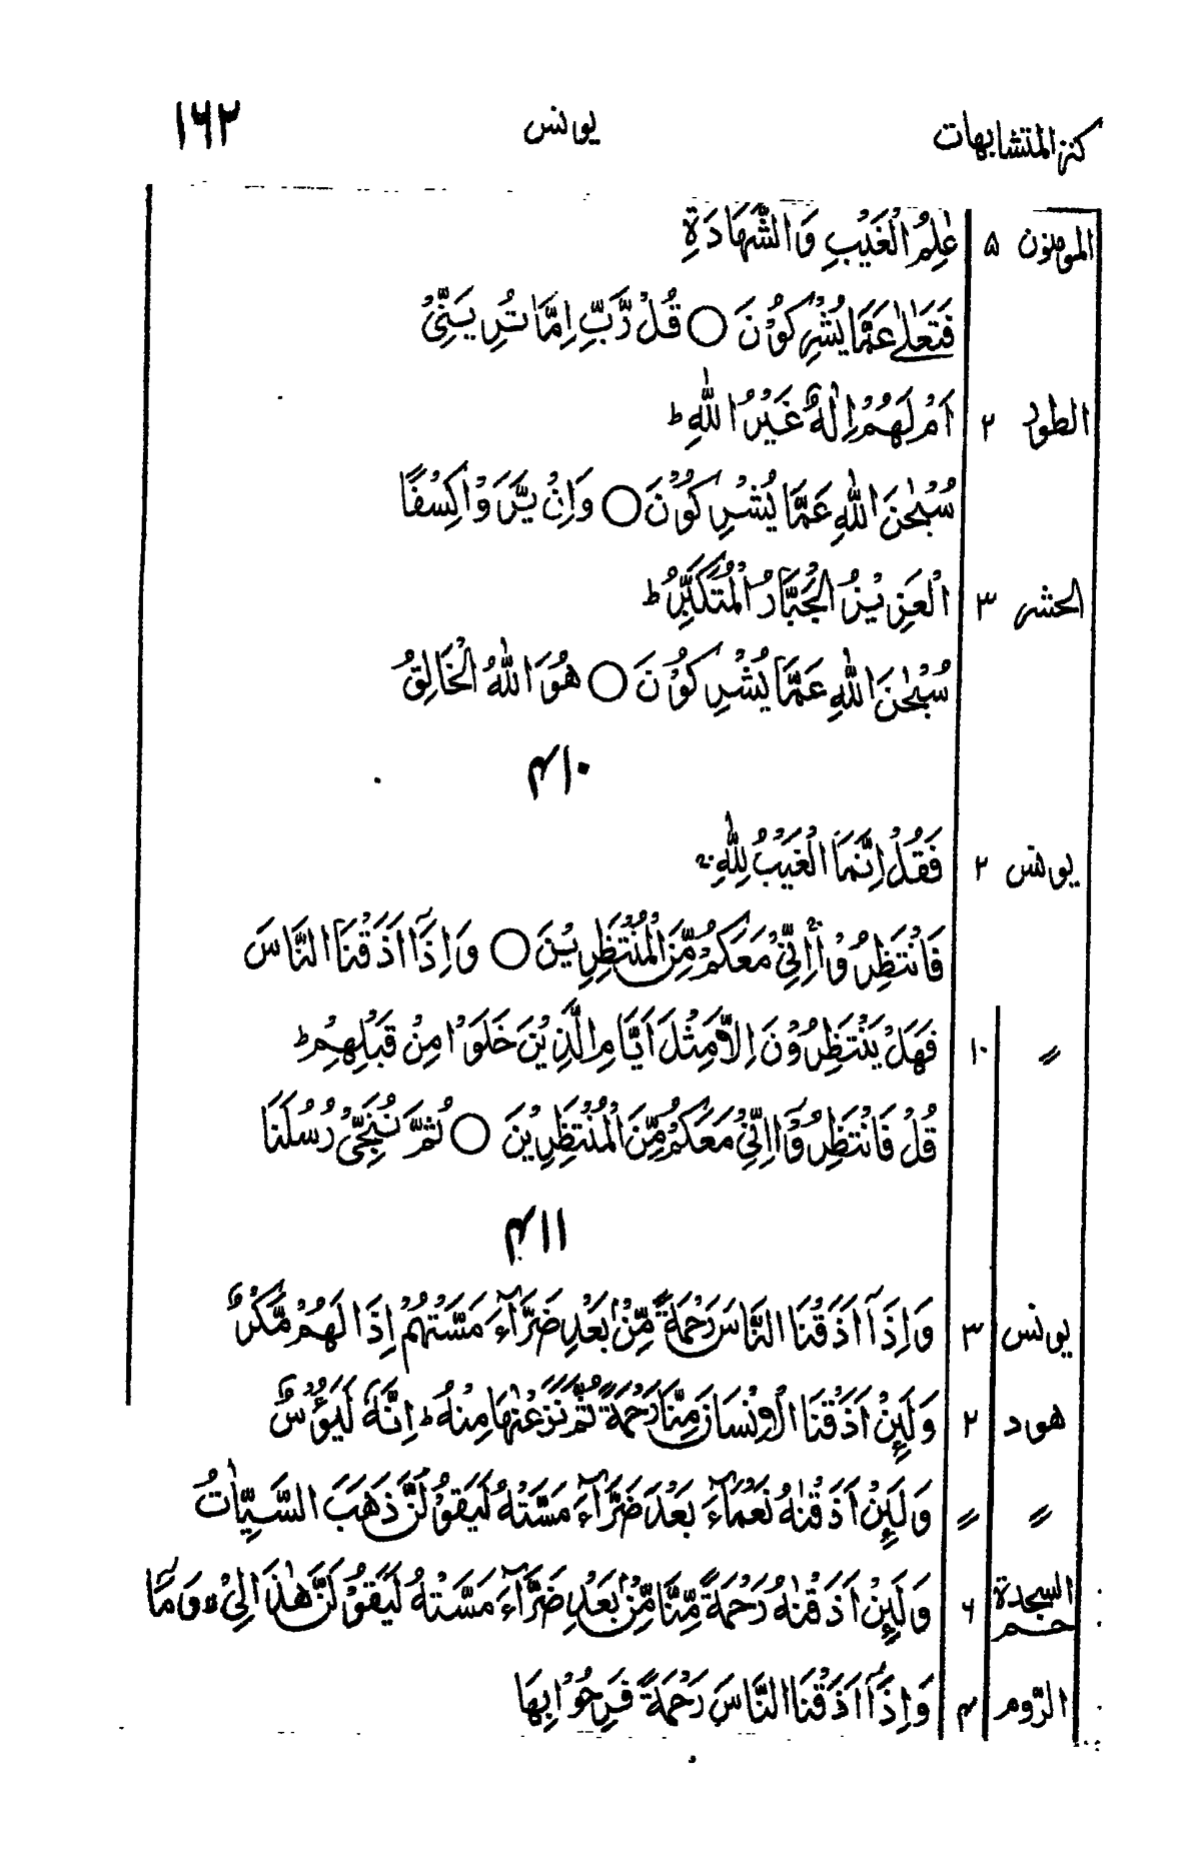 كنز المتشابهات يونس ١٦٣
المومنون ٥ عٰلِمُ الْغَيْبِ وَالشَّهَادَةِ
فَتَعٰلٰى عَمَّا يُشْرِكُوْنَ ○ قُلْ رَّبِّ اِمَّا تُرِيَنِّىْ
الطور ٢ اَمْ لَهُمْ اِلٰهٌ غَيْرُ اللّٰهِ ؕ
سُبْحٰنَ اللّٰهِ عَمَّا يُشْرِكُوْنَ ○ وَاِنْ يَّرَوْا كِسْفًا
الحشر ٣ الْعَزِيْزُ الْجَبَّارُ الْمُتَكَبِّرُ ؕ
سُبْحٰنَ اللّٰهِ عَمَّا يُشْرِكُوْنَ ○ هُوَ اللّٰهُ الْخَالِقُ
٤١٠
يونس ٢ فَقُلْ اِنَّمَا الْغَيْبُ لِلّٰهِ
فَانْتَظِرُوْا ۚ اِنِّىْ مَعَكُمْ مِّنَ الْمُنْتَظِرِيْنَ ○ وَاِذَآ اَذَقْنَا النَّاسَ
〃 ١٠ فَهَلْ يَنْتَظِرُوْنَ اِلَّا مِثْلَ اَيَّامِ الَّذِيْنَ خَلَوْا مِنْ قَبْلِهِمْ ؕ
قُلْ فَانْتَظِرُوْٓا اِنِّىْ مَعَكُمْ مِّنَ الْمُنْتَظِرِيْنَ ○ ثُمَّ نُنَجِّىْ رُسُلَنَا
٤١١
يونس ٣ وَاِذَآ اَذَقْنَا النَّاسَ رَحْمَةً مِّنْۢ بَعْدِ ضَرَّآءَ مَسَّتْهُمْ اِذَا لَهُمْ مَّكْرٌ
هود ٢ وَلَئِنْ اَذَقْنَا الْاِنْسَانَ مِنَّا رَحْمَةً ثُمَّ نَزَعْنٰهَا مِنْهُ ؕ اِنَّهٗ لَيَئُوْسٌ
〃 〃 وَلَئِنْ اَذَقْنٰهُ نَعْمَآءَ بَعْدَ ضَرَّآءَ مَسَّتْهُ لَيَقُوْلَنَّ ذَهَبَ السَّيِّاٰتُ
السجدة حٰم ٦ وَلَئِنْ اَذَقْنٰهُ رَحْمَةً مِّنَّا مِنْۢ بَعْدِ ضَرَّآءَ مَسَّتْهُ لَيَقُوْلَنَّ هٰذَا لِىْ ۙ وَمَآ
الرّوم ٤ وَاِذَآ اَذَقْنَا النَّاسَ رَحْمَةً فَرِحُوْا بِهَا